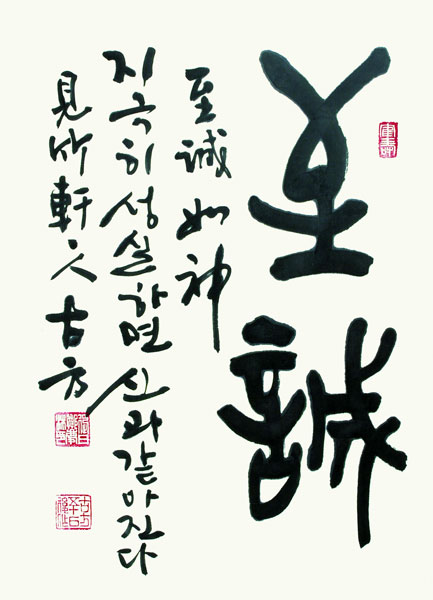 至誠
至誠如神
지극히성실하면 신과같아진다
見竹軒人 古方